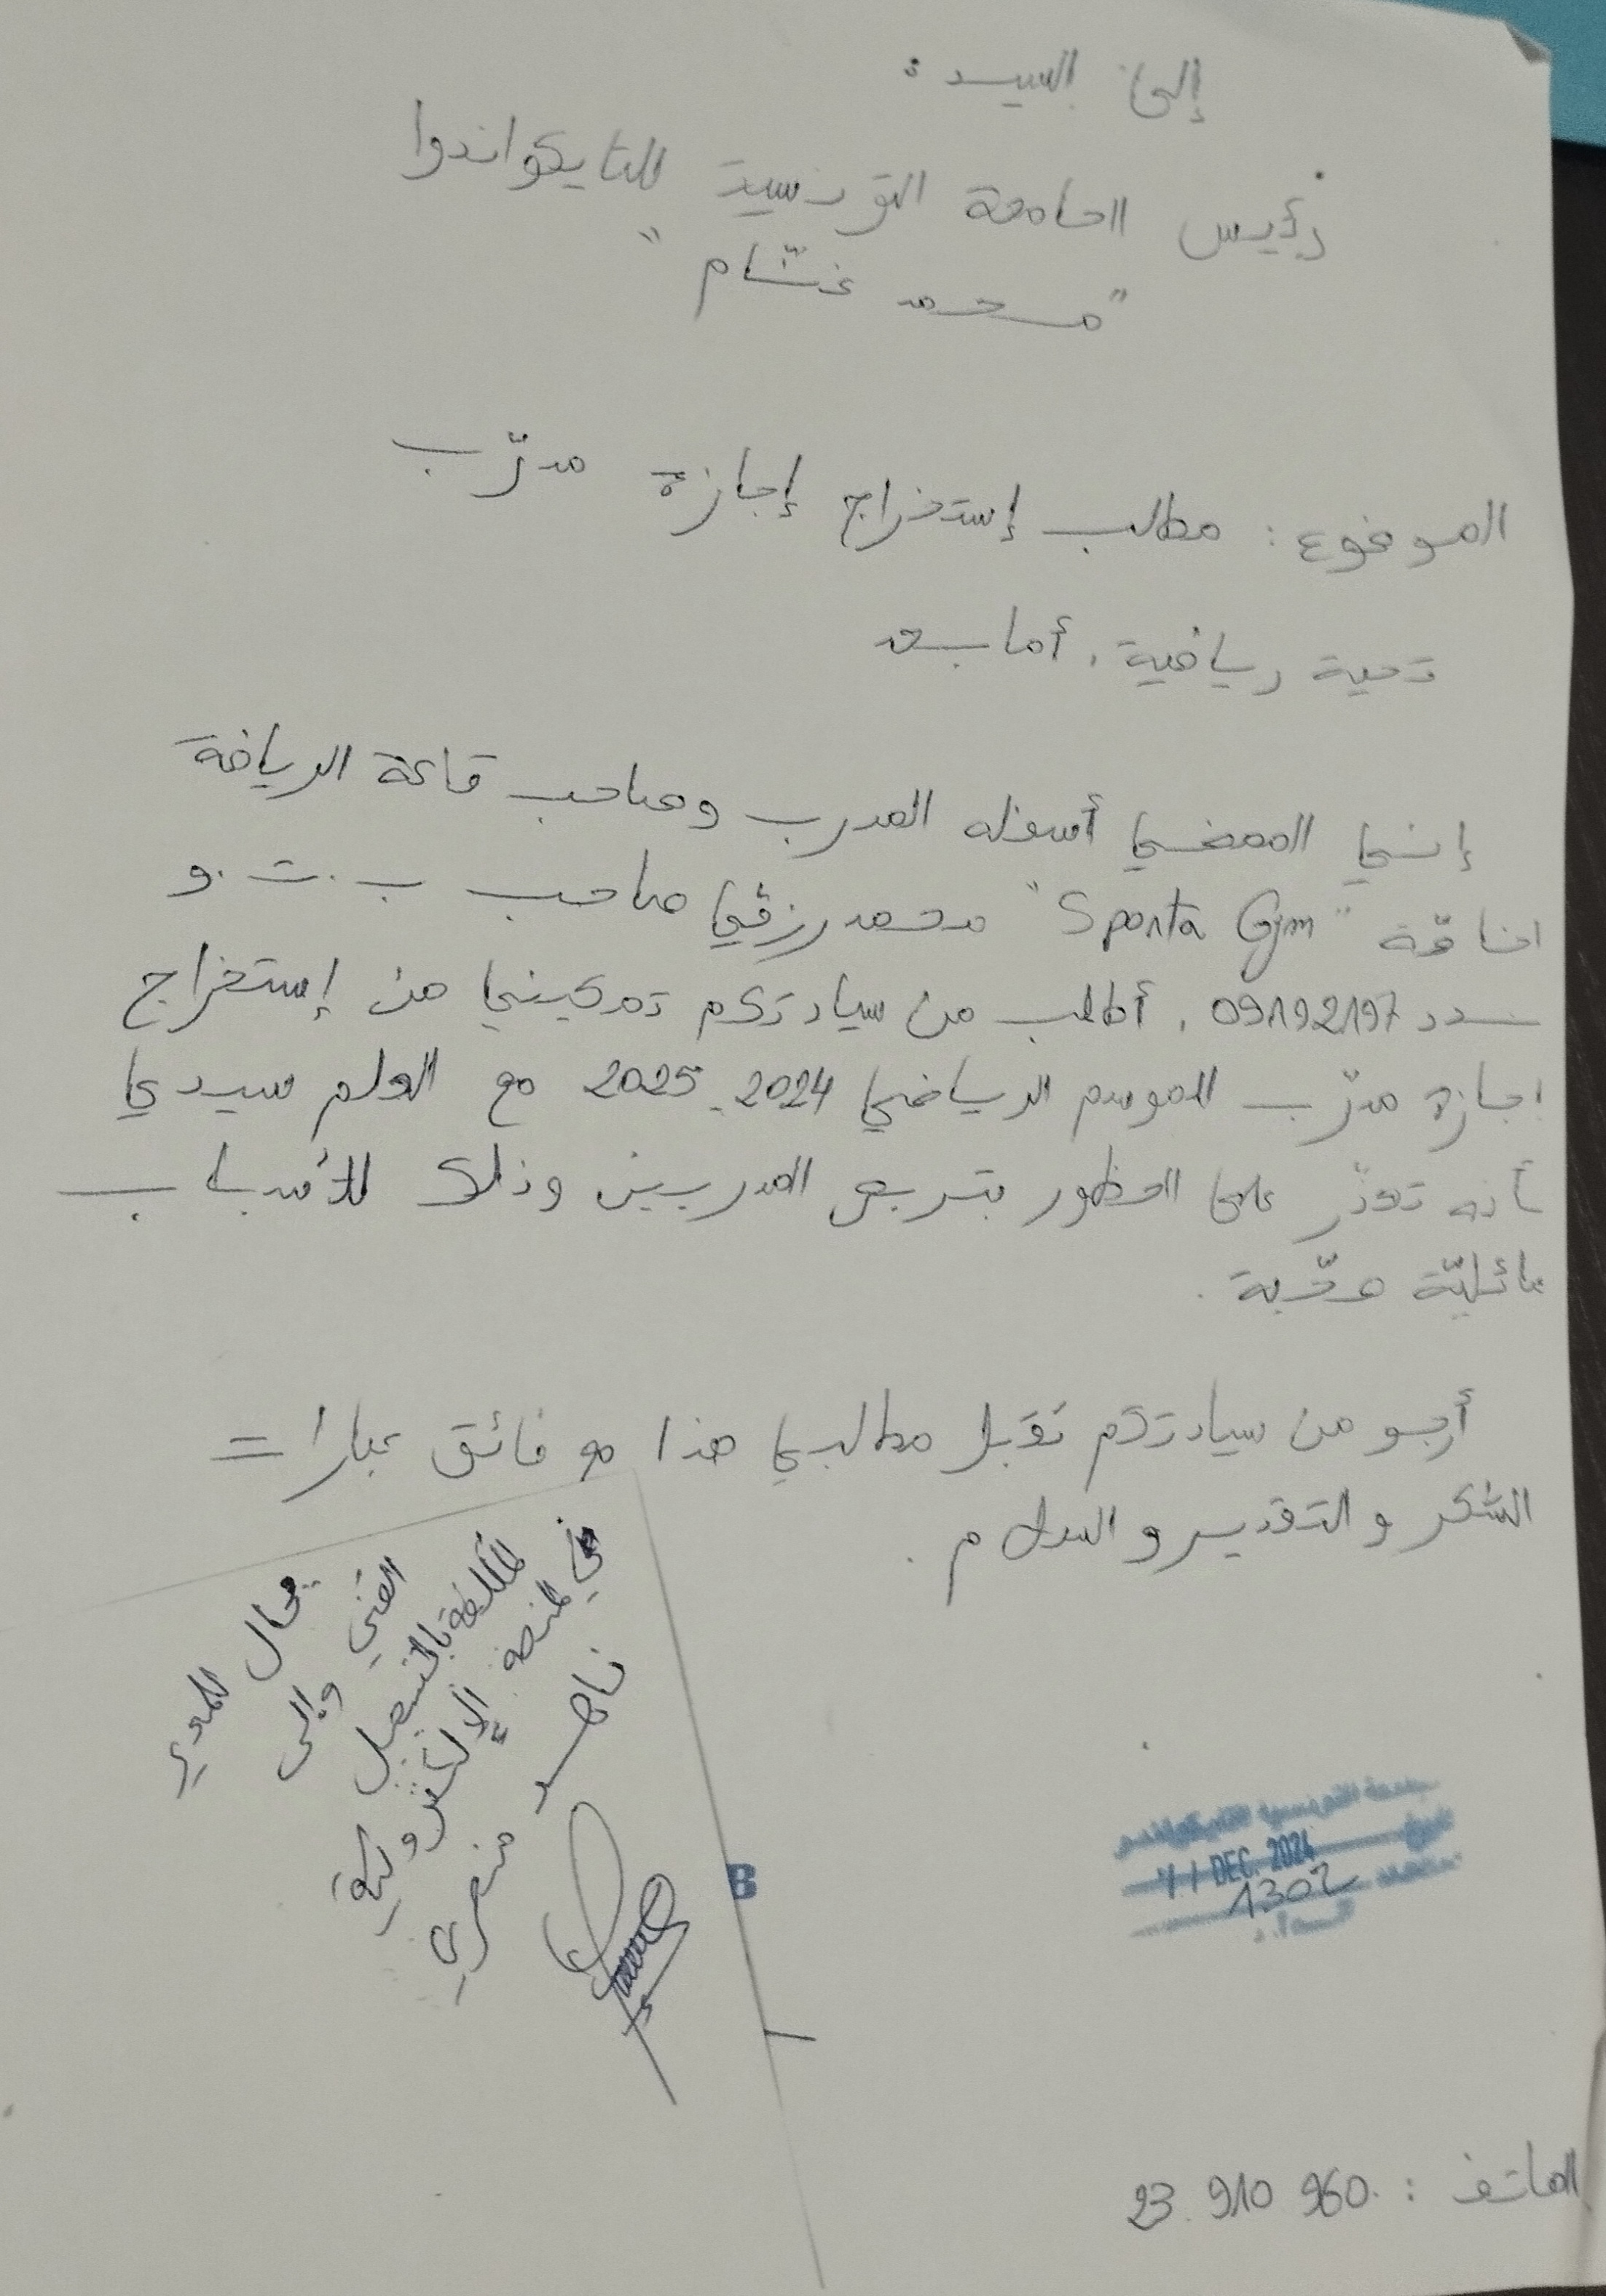 إلى السيد :
رئيس الجامعة التونسية للتايكواندوا
"محمد غشّام"
الموضوع : مطلب إستخراج إجازة مدرّب
تحية رياضية ، أما بعد
إنني الممضي أسفله المدرب وصاحب قاعة الرياضة
الخاصّة "Sparta Gym" محمد رزقي صاحب ب.ت.و
عدد 09192197 ، أطلب من سيادتكم تمكيني من إستخراج
إجازة مدرّب للموسم الرياضي 2024-2025 مع العلم سيدي
أنه تعذّر علي الحظور بتربص المدربين وذلك للأسباب
عائليّة صحّية .
أرجو من سيادتكم تقبل مطلبي هذا مع فائق عبارات
الشكر و التقدير و السلام .
يحال للمدير
الفني وإلى
المكلفة بالتسجيل
في المنصة الإلكترونية
ناصر منصري
الجامعة التونسية للتايكواندو
11 DEC. 2024
1302
الوارد
B
الهاتف : 23 910 960